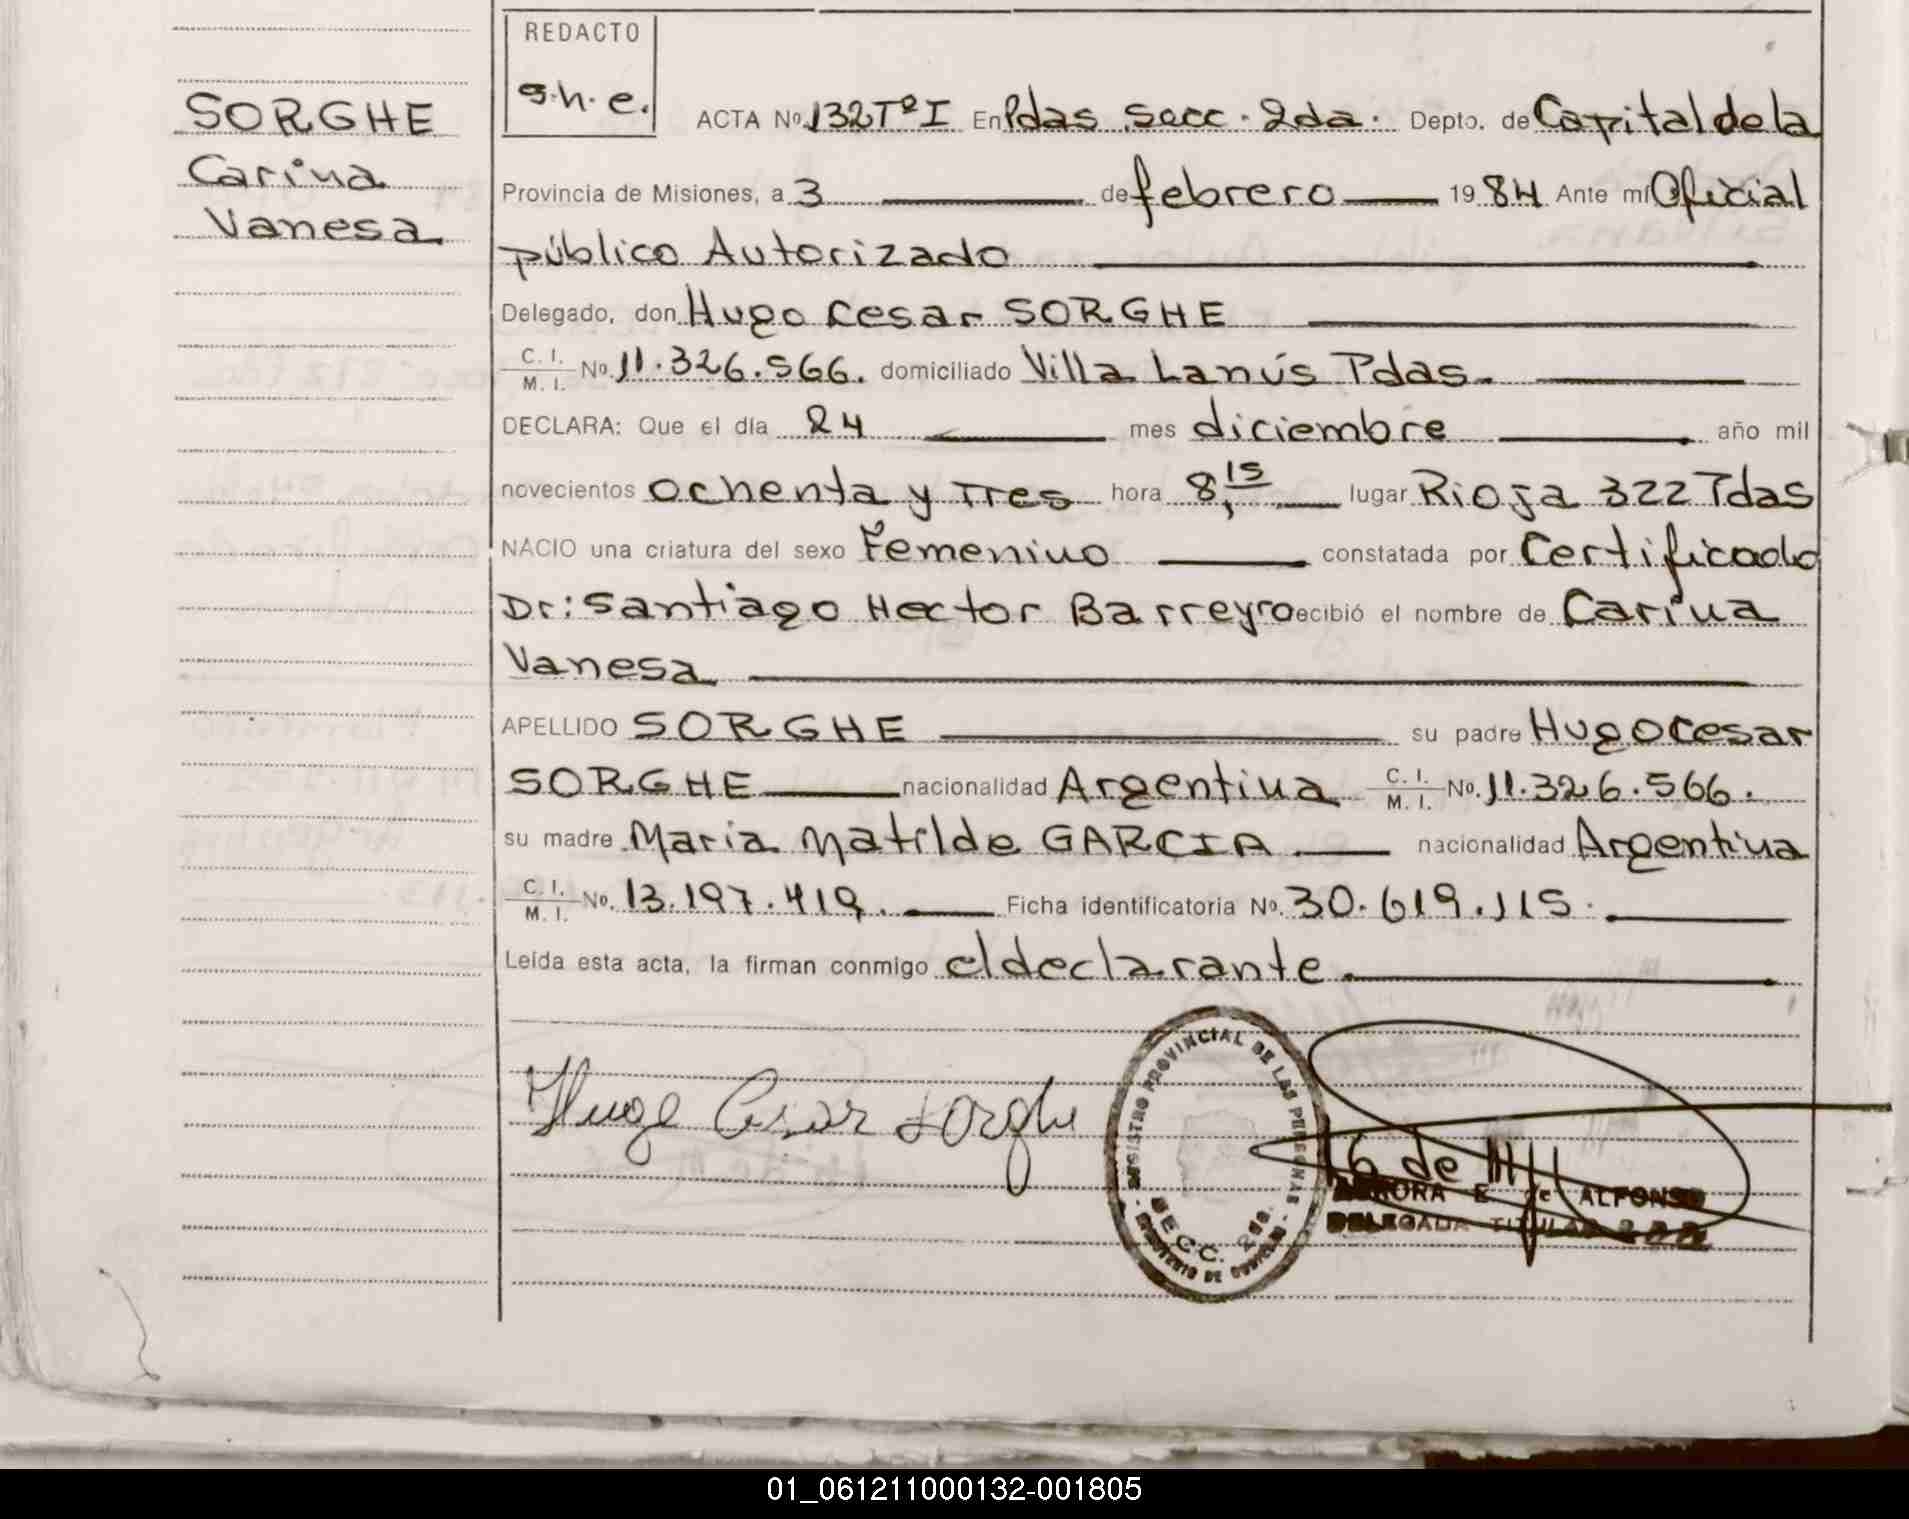 REDACTO
g.h.e.
SORGHE
Carina
Vanesa
ACTA Nº 132 Tº I En Pdas Secc. 2da. Depto. de Capital de la
Provincia de Misiones, a 3 de febrero 1984 Ante mí Oficial
público Autorizado
Delegado, don Hugo Cesar SORGHE
C. I. / M. I. Nº 11.326.566. domiciliado Villa Lanús Pdas.
DECLARA: Que el día 24 mes diciembre año mil
novecientos ochenta y Tres hora 8,15 lugar Rioja 322 Pdas
NACIO una criatura del sexo Femenino constatada por Certificado
Dr: Santiago Hector Barreyro ecibió el nombre de Carina
Vanesa
APELLIDO SORGHE su padre Hugo Cesar
SORGHE nacionalidad Argentina C. I. / M. I. Nº 11.326.566.
su madre Maria Matilde GARCIA nacionalidad Argentina
C. I. / M. I. Nº 13.197.419. Ficha identificatoria Nº 30.619.115.
Leída esta acta, la firman conmigo el declarante.
Hugo Cesar Sorghe
REGISTRO PROVINCIAL DE LAS PERSONAS
SECC. 2da.
AURORA E. de ALFONSO
DELEGADA TITULAR
01_061211000132-001805